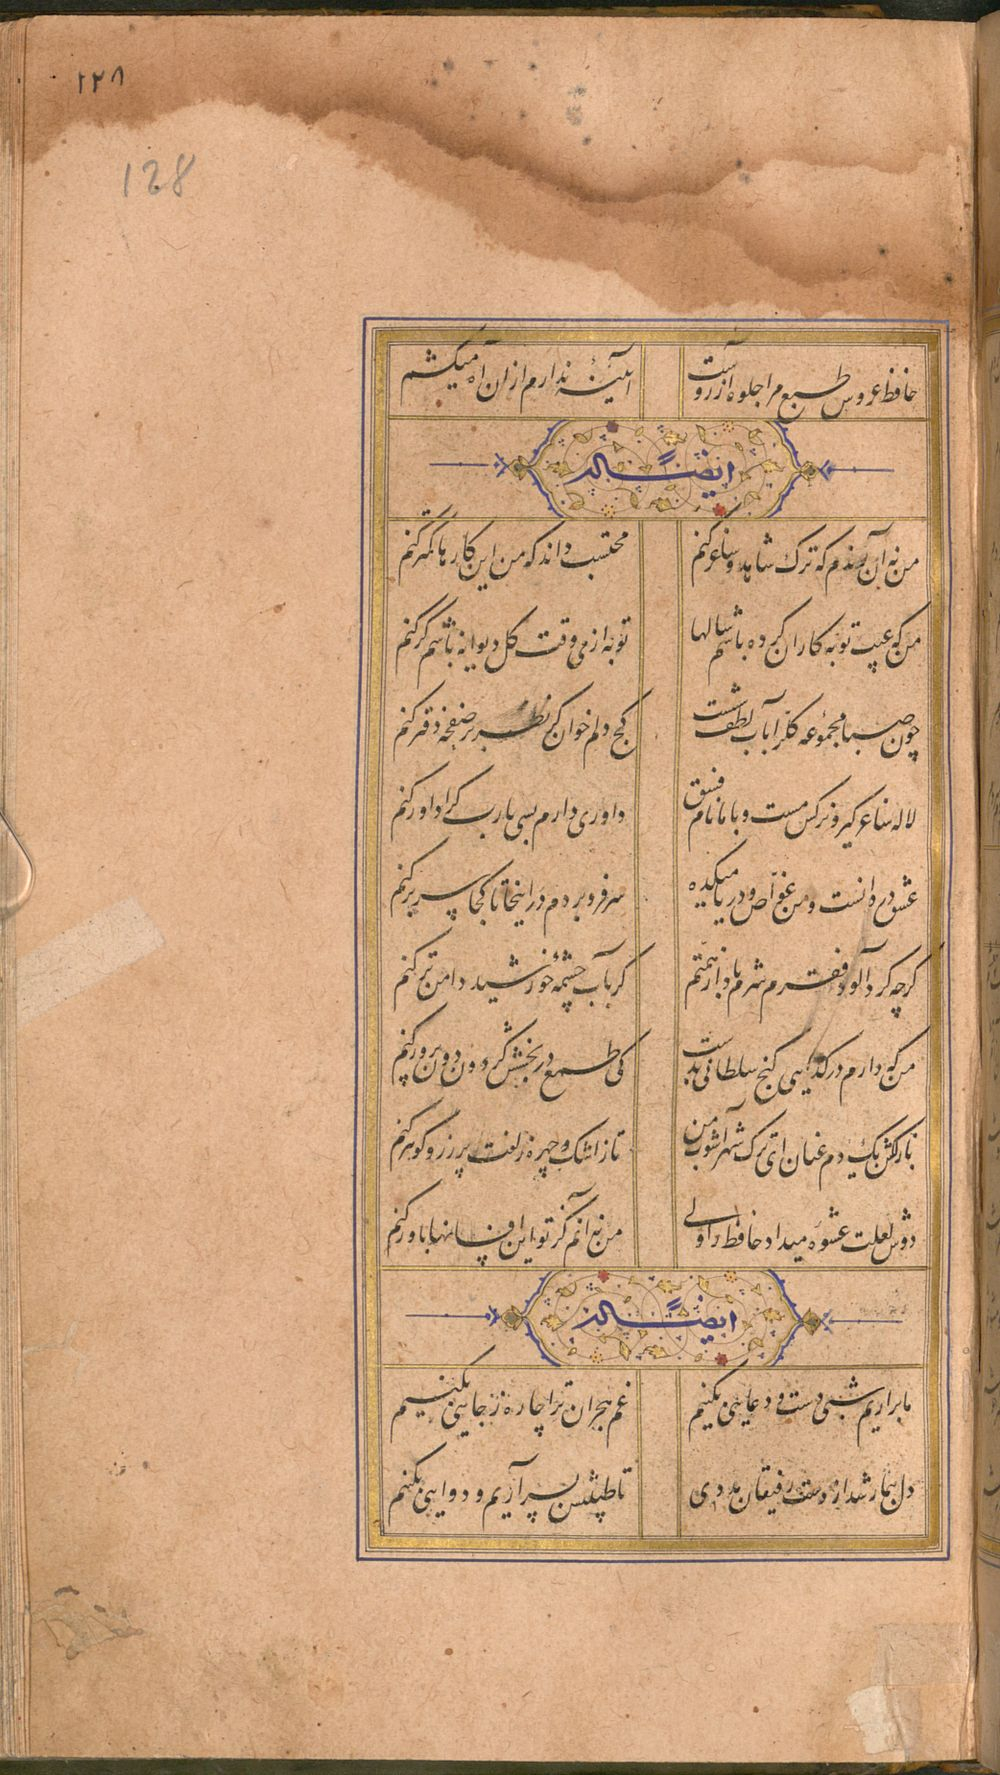 ۱۲۸
128
حافظ عروس طبع مرا جلوه آرزوست آیینهٔ ندارم ازان آه میکشم
ایضاً له
من نه آن رندم که ترک شاهد و ساغر کنم محتسب داند که من این کارها کمتر کنم
من که عیب توبه کاران کرده باشم سالها توبه از می وقت کل دیوانه باشم کر کنم
چون صبا مجموعه کل را بآب لطف شست کج دلم خوان کر نظر بر صفحه دفتر کنم
لاله ساغر کیر و نرکس مست و بر ما نام فسق داوری دارم بسی یارب کرا داور کنم
عشق دردانست و من غواص و دریا میکده سر فرو بردم در اینجا تا کجا سر بر کنم
کرچه کرد آلود فقرم شرم باد از همتم کر بآب چشمه خورشید دامن تر کنم
من که دارم در کدایی کنج سلطانی بدست کی طمع در بخشش کردون دون پرور کنم
بازکش یک دم عنان ای ترک شهر آشوب من تا ز اشک و چهره راهت پر زر و کوهر کنم
دوش لعلت عشوه میداد حافظ را ولی من نه آنم کز تو این افسانها باور کنم
ایضاً له
ما براریم شبی دست و دعایی بکنیم غم هجران ترا چاره ز جایی بکنیم
دل بیمار شد از دست رفیقان مددی تا طبیبش بسر آریم و دوایی بکنیم